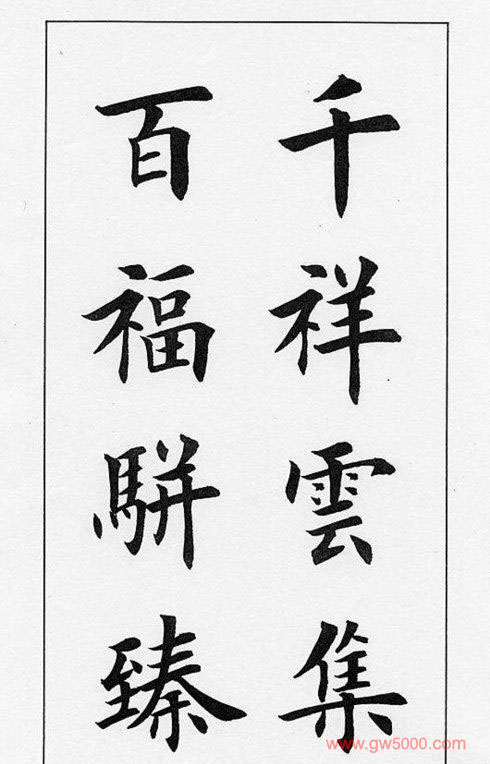 千祥雲集
百福駢臻
www.gw5000.com